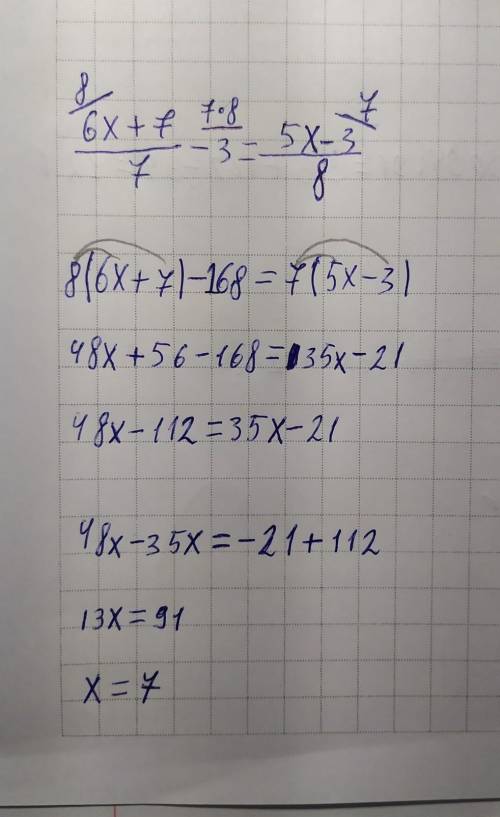 8/ 7·8 7\
(6x+7)/7 - 3 = (5x-3)/8
8(6x+7)-168=7(5x-3)
48x+56-168=35x-21
48x-112=35x-21
48x-35x=-21+112
13x=91
x=7